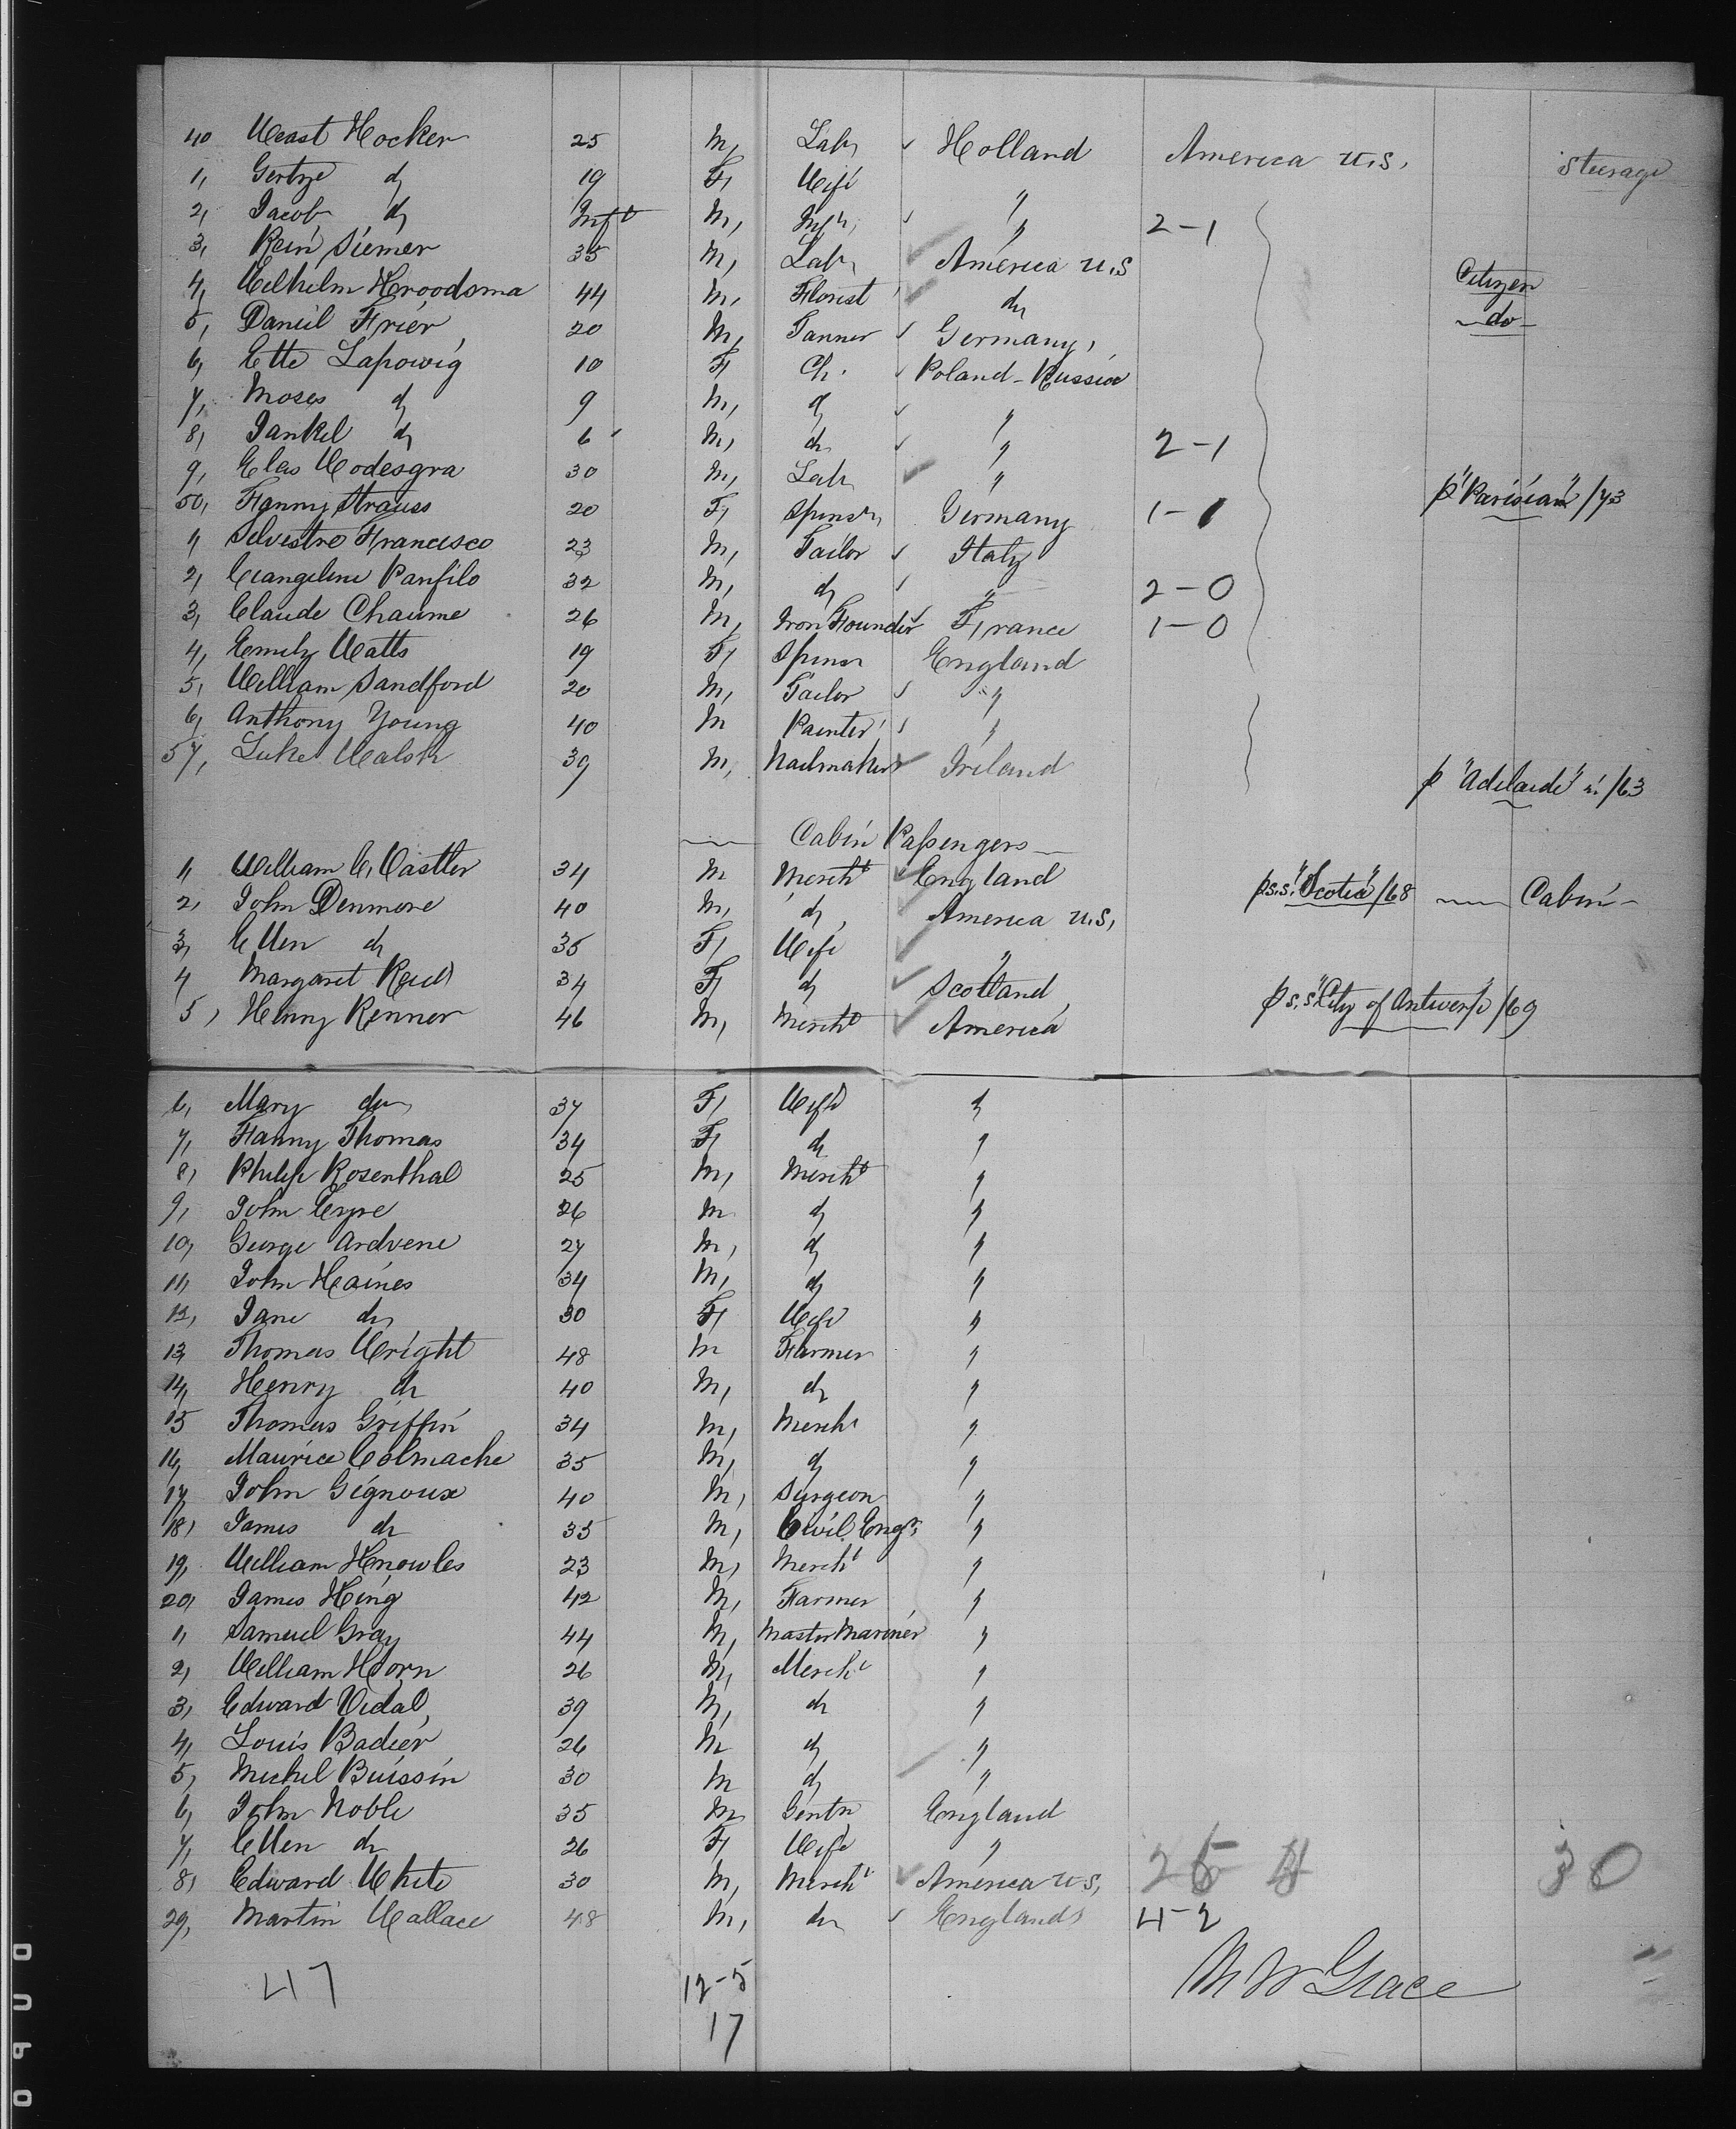 40 Weast Hocker 25 M, Labr Holland America U.S. Steerage
1, Gertze do 19 F, Wife "
2, Jacob do Inft M, Infn, " 2-1
3, Rein Siemer 35 M, Labr America U.S Citizen
4, Wilhelm Kroodsma 44 M, Florist do do
5, Daniel Frier 20 M, Tanner Germany,
6, Ette Lapowig 10 F, Ch. Poland-Russia
7, Moses do 9 M, do "
8, Jankel do 6 M, do " 2-1
9, Elas Wodesgra 30 M, Labr " p "Parisian" /73
50, Fanny Strauss 20 F, Spinsr, Germany 1-1
1, Silvestre Francesco 23 M, Tailor Italy
2, Evangeline Panfilo 32 M, do " 2-0
3, Claude Chaume 26 M, Iron Founder France 1-0
4, Emily Watts 19 F, Spinsr England
5, William Sandford 20 M, Tailor "
6, Anthony Young 40 M Painter, "
57, Luke Walsh 39 M, Nailmaker Ireland p "Adelaide" /63
Cabin Passengers
1, William C. Castler 34 M Mercht England p s.s. "Scotia" /68 Cabin
2, John Denmore 40 M, do, America U.S,
3, Ellen do 35 F, Wife "
4 Margaret Reid 34 F, do Scotland
5, Henry Renner 46 M, Mercht America p s.s "City of Antwerp /69
6, Mary do 37 F, Wife do
7, Fanny Thomas 34 F, do "
8, Philip Rosenthal 25 M, Mercht "
9, John Eyre 26 M do "
10, George Ardvene 27 M, do "
11, John Haines 34 M, do "
12, Jane do 30 F, Wife "
13, Thomas Wright 48 M Farmer "
14, Henry do 40 M, do "
15 Thomas Griffin 34 M, Mercht "
16, Maurice Colmache 35 M, do "
17, John Gignoux 40 M, Surgeon "
18, James do 35 M, Civil Engr. "
19, William Knowles 23 M, Mercht "
20, James King 42 M, Farmer "
1, Samuel Gray 44 M, Master Mariner "
2, William Horn 26 M, Mercht "
3, Edward Vidal, 39 M, do "
4, Louis Badier 26 M do "
5, Michel Buissin 30 M do "
6, John Noble 35 M Gentn England
7, Ellen do 26 F, Wife "
8, Edward White 30 M, Mercht America U S, 30
29, Martin Wallace 48 M, do England 4-2
47 12-5 M W Grace
17